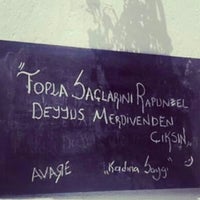 "TOPLA SAÇLARINI RAPUNZEL
DEYYUS MERDİVENDEN
ÇIKSIN "
AVARE „Kadına Saygı